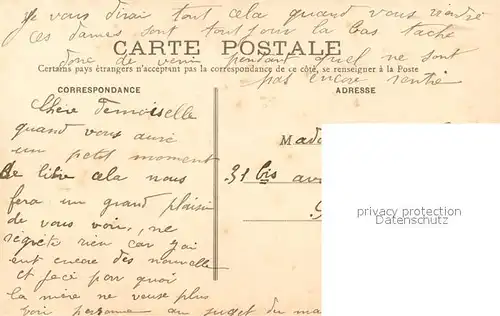 je vous dirai tout cela quand vous viendré
ces dames sont toutjour la bas taché
CARTE POSTALE
donc de venir pendant quel ne sont
Certains pays étrangers n'acceptent pas la correspondance de ce côté, se renseigner à la Poste
pas encore rentré
CORRESPONDANCE
ADRESSE
Chère Demoiselle
quand vous auré
un petit moment
de libre cela nous
fera un grand plaisir
de vous voir, ne
régrété rien car j'ai
ent encore des nouvelle
et ceci pour quoi
la mère ne veuse plus
voir personne au sujet du ma
Mada
31 bis av
privacy protection
Datenschutz